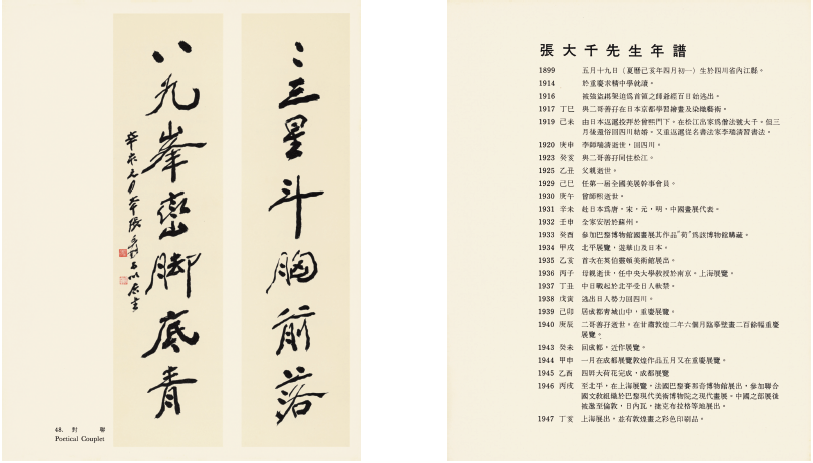 二三星斗胸前落
八九峯巒脚底青
48. 對 聯
Poetical Couplet
張大千先生年譜
1899 五月十九日（夏曆己亥年四月初一）生於四川省內江縣。
1914 於重慶求精中學就讀。
1916 被強盜綁架迫爲首領之師爺經百日始逃出。
1917 丁巳 與二哥善孖在日本京都學習繪畫及染織藝術。
1919 己未 由日本返滬投拜於曾熙門下。在松江出家爲僧法號大千。但三
月後還俗回四川結婚。又重返滬從名書法家李瑞清習書法。
1920 庚申 李師瑞清逝世。回四川。
1923 癸亥 與二哥善孖同住松江。
1925 乙丑 父親逝世。
1929 己巳 任第一屆全國美展幹事會員。
1930 庚午 曾師熙逝世。
1931 辛未 赴日本爲唐，宋，元，明，中國畫展代表。
1932 壬申 全家安居於蘇州。
1933 癸酉 參加巴黎博物館國畫展其作品“荷”爲該博物館購藏。
1934 甲戌 北平展覽，遊華山及日本。
1935 乙亥 首次在英伯靈頓美術館展出。
1936 丙子 母親逝世，任中央大學教授於南京。上海展覽。
1937 丁丑 中日戰起於北平受日人軟禁。
1938 戊寅 逃出日人勢力回四川。
1939 己卯 居成都青城山中，重慶展覽。
1940 庚辰 二哥善孖逝世。在甘肅敦煌二年六個月臨摹壁畫二百餘幅重慶
展覽。
1943 癸未 回成都，近作展覽。
1944 甲申 一月在成都展覽敦煌作品五月又在重慶展覽。
1945 乙酉 四屛大荷花完成，成都展覽
1946 丙戌 至北平，在上海展覽。法國巴黎賽那奇博物館展出，參加聯合
國文教組織於巴黎現代美術博物院之現代畫展。中國之部展後
被邀至倫敦，日內瓦，捷克布拉格等地展出。
1947 丁亥 上海展出。並有敦煌畫之彩色印刷品。